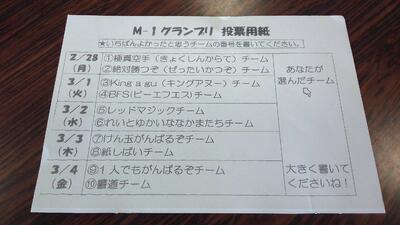 M-1グランプリ 投票用紙
★いちばんよかったと思うチームの番号を書いてください。
2/28
(月)
①極真空手（きょくしんからて）チーム
②絶対勝つぞ（ぜったいかつぞ）チーム
3/1
(火)
③King agu（キングアヌー）チーム
④BFS(ビーエフエス)チーム
3/2
(水)
⑤レッドマジックチーム
⑥れいとゆかいななかまたちチーム
3/3
(木)
⑦けん玉がんばるぞチーム
⑧紙しばいチーム
3/4
(金)
⑨1人でもがんばるぞチーム
⑩書道チーム
あなたが
選んだチーム
大きく書いて
くださいね！